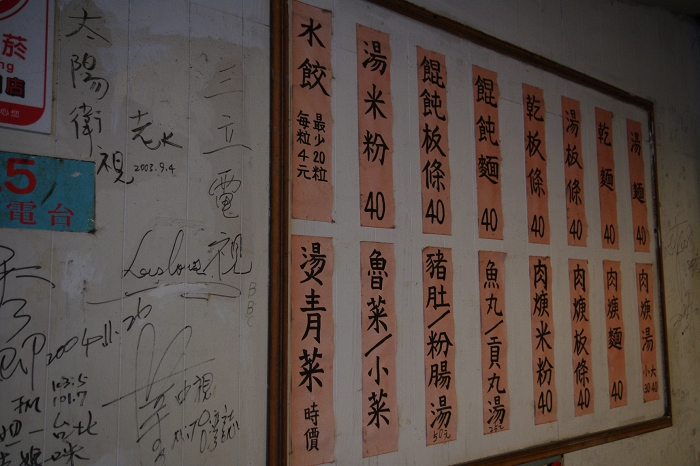 太陽衛視
老水
2003.9.4
三立電視
菸
ng
店
.5
電台
2004.11.26
103.5
101.7
台北
中視
BBC
湯麵 40
乾麵 40
湯板條 40
乾板條 40
餛飩麵 40
餛飩板條 40
湯米粉 40
水餃 最少20粒 每粒4元
肉焿湯 小30 大40
肉焿麵 40
肉焿板條 40
肉焿米粉 40
魚丸/貢丸湯 25元
豬肚/粉腸湯 50元
魯菜/小菜
燙青菜 時價